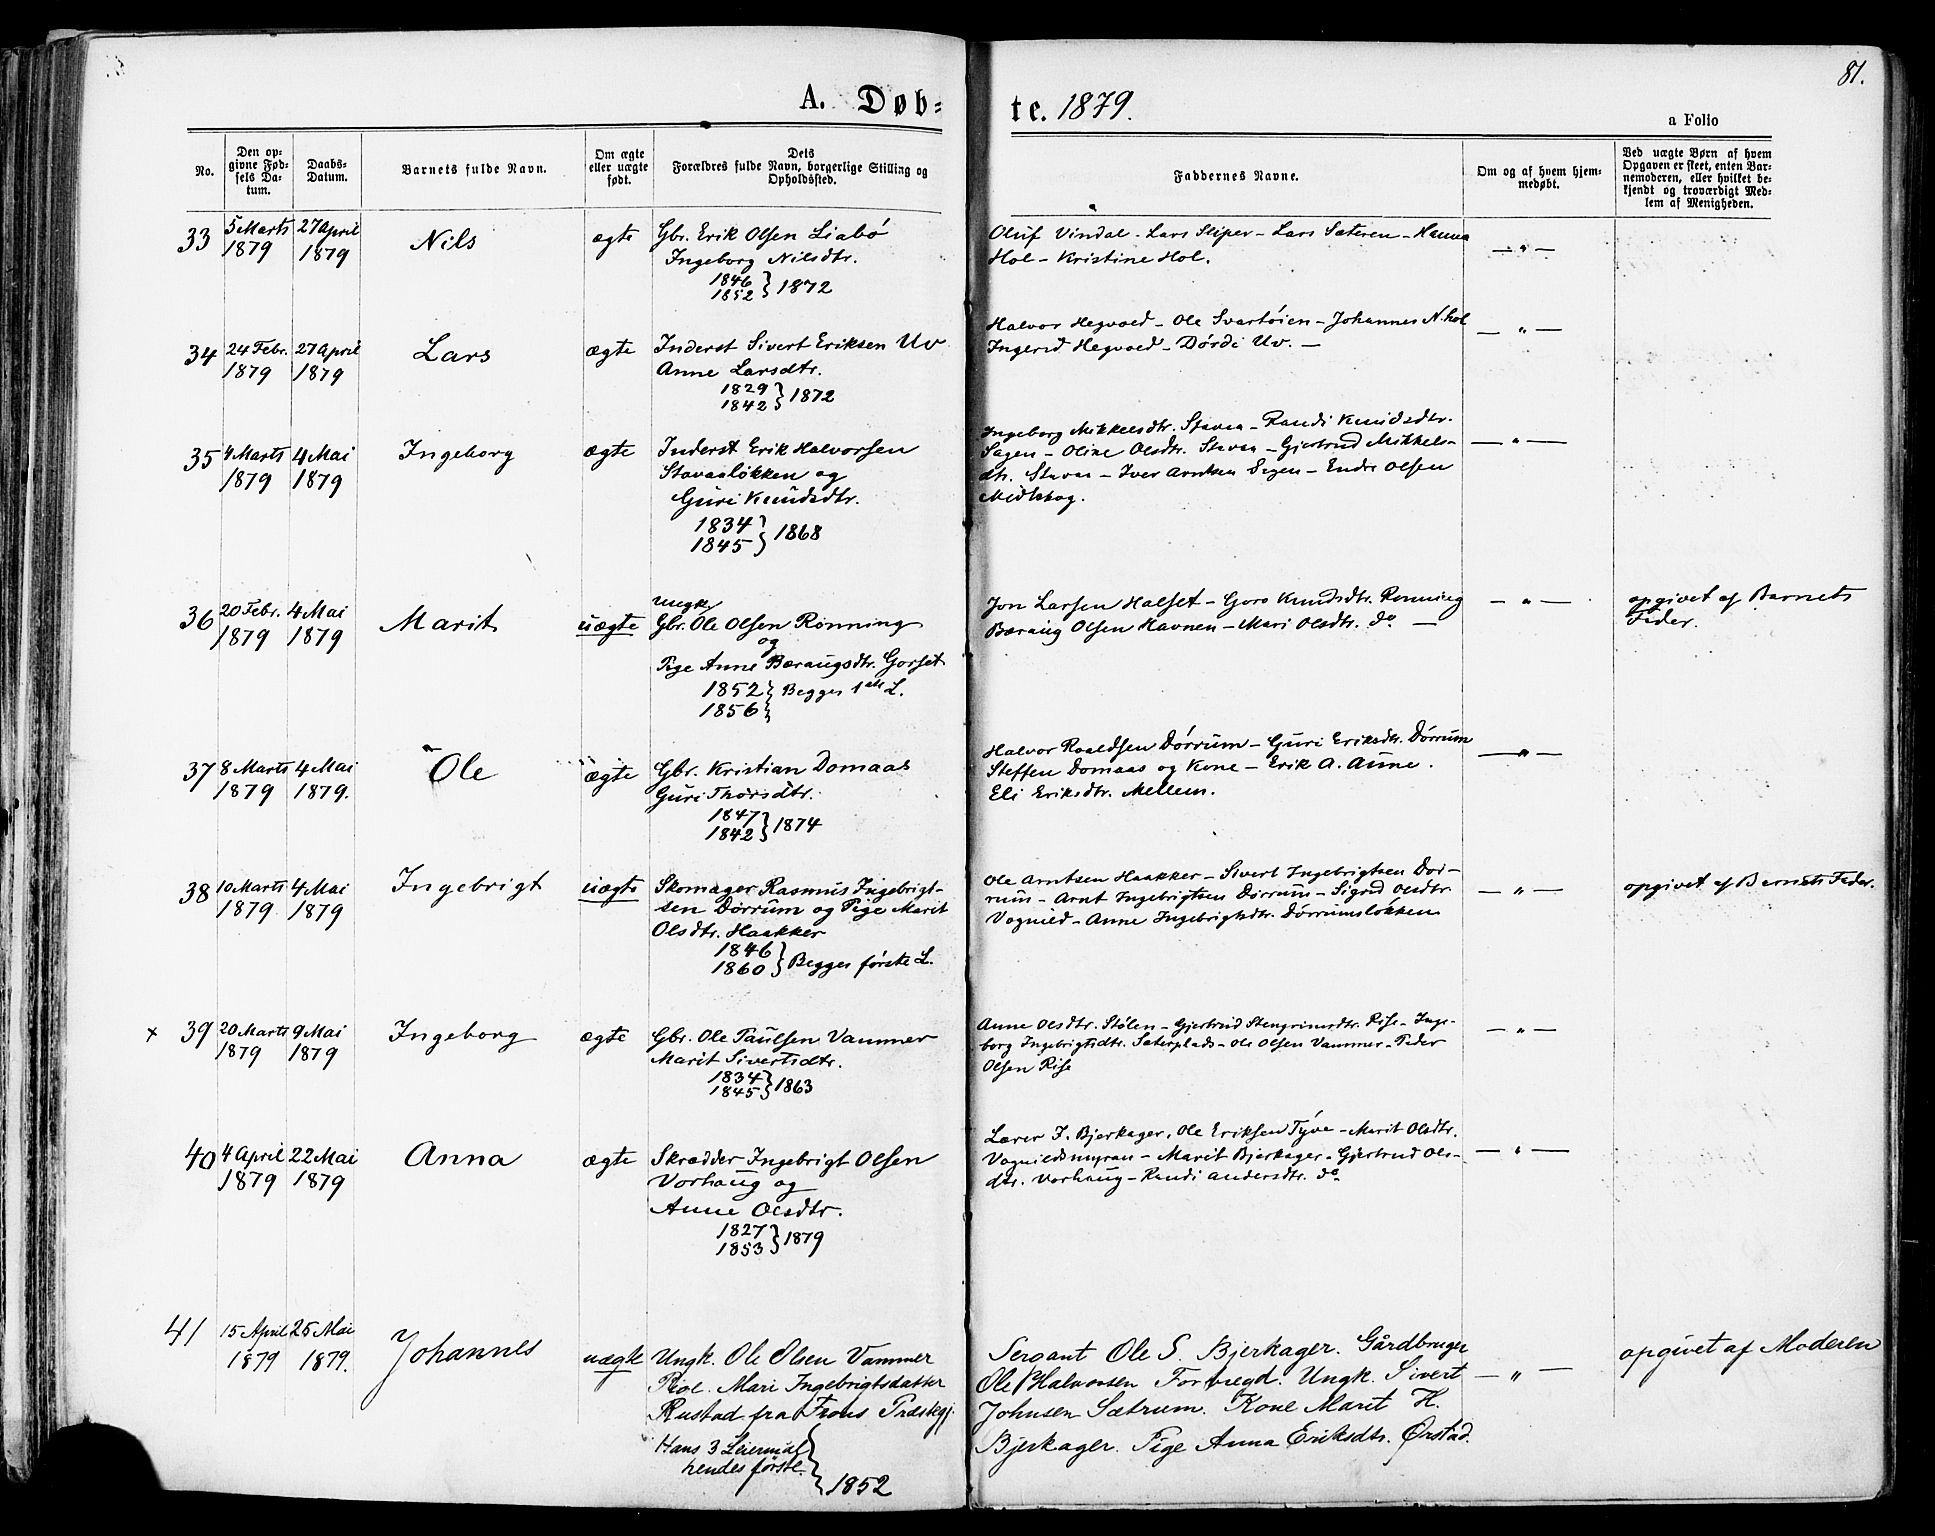 81.
A. Døb=
te. 1879.
a Folio
No.
Den op-
givne Fød-
sels Da-
tum.
Daabs-
Datum.
Barnets fulde Navn.
Om ægte
eller uægte
født.
Dets
Forældres fulde Navn, borgerlige Stilling og
Opholdssted.
Faddernes Navne.
Om og af hvem hjem-
medøbt.
Ved uægte Børn af hvem
Opgaven er skeet, enten Bar-
nemoderen, eller hvilket be-
kjendt og troværdigt Med-
lem af Menigheden.
33
5 Marts
1879
27 April
1879
Nils
ægte
Gbr. Erik Olsen Liabø
Ingeborg Nilsdtr.
1846
1852 } 1872
Oluf Vindal - Lars Sliper - Lars Sæteren - Hanna
Hol - Kristine Hol.
— " —
34
24 Febr.
1879
27 April
1879
Lars
ægte
Inderst Sivert Eriksen Uv
Anne Larsdtr.
1829
1842 } 1872
Halvor Hegvold - Ole Svartøien - Johannes N.hol
Ingerid Hegvold - Dørdi Uv. —
— " —
35
4 Marts
1879
4 Mai
1879
Ingeborg
ægte
Inderst Erik Halvorsen
Stavasløkken og
Guri Knudsdtr.
1834
1845 } 1868
Ingeborg Mikkelsdtr. Stavaa - Randi Knudsdtr.
- Oline Olsdtr. Stavaa - Gjertrud Mikkels-
dtr. Stavaa - Iver Arntsen - Endre Olsen
Midtskog.
— " —
36
20 Febr.
1879
4 Mai
1879
Marit
uægte
Ungk.
Gbr. Ole Olsen Rønning
og
Pige Anne Bæraugsdtr. Gorset
1852
1856 } Begges 1ste L.
Jon Larsen Halset - Goro Knudsdtr. Rønning
Bæraug Olsen Havnen - Mari Olsdtr. do —
— " —
opgivet af Barnets
Fader.
37
8 Marts
1879
4 Mai
1879.
Ole
ægte
Gbr. Kristian Domaas
Guri Thorsdtr.
1847
1842 } 1874
Halvor Roaldsen Dørrum - Guri Eriksdtr. Dørrum
Steffen Domaas og Kone - Erik A. Aune.
Eli Eriksdtr. Mellem.
— " —
38
10 Marts
1879
4 Mai
1879
Ingebrigt
uægte
Skomager Rasmus Ingebrigt-
sen Dørrum og Pige Marit
Olsdtr. Haakker
1846
1860 } Begges første L.
Ole Arntsen Haakker - Sivert Ingebrigtsen Dør-
rum - Arnt Ingebrigtsen Dørrum - Sigrid Olsdtr
Vognild - Anne Ingebrigtsdtr. Dørrumsløkken
— " —
opgivet af Barnets Fader.
x 39
20 Marts
1879
9 Mai
1879
Ingeborg
ægte
Gbr. Ole Paulsen Vammer
Marit Sivertsdtr.
1834
1845 } 1863
Anne Olsdtr. Stølen - Gjertrud Stengrimsdtr. Rise - Inge-
borg Ingebrigtsdtr. Sæterplads - Ole Olsen Vammer - Peder
Olsen Rise
— " —
40
4 April
1879
22 Mai
1879
Anna
ægte
Skrædder Ingebrigt Olsen
Vorhaug og
Anne Olsdtr.
1827
1853 } 1879
Lærer J. Bjerkager, Ole Eriksen Tyve - Marit Olsdtr.
Vognildsmyran - Marit Bjerkager - Gjertrud Ols-
dtr. Vorhaug - Randi Andersdtr. do
— " —
41
15 April
1879
25 Mai
1879.
Johannes
uægte
Ungk. Ole Olsen Vammer
Mari Ingebrigtsdatter
Rustad fra Frons Præstegj.
Hans 3 Leiermål
hendes første. } 1852
Sergant Ole S. Bjerkager. Gårdbruger
Ole Halvorsen Forvegd. Ungk. Sivert
Johnsen Sætrum. Kone Marit H.
Bjerkager. Pige Anna Eriksdtr. Ørstad.
— " —
opgivet af Moderen